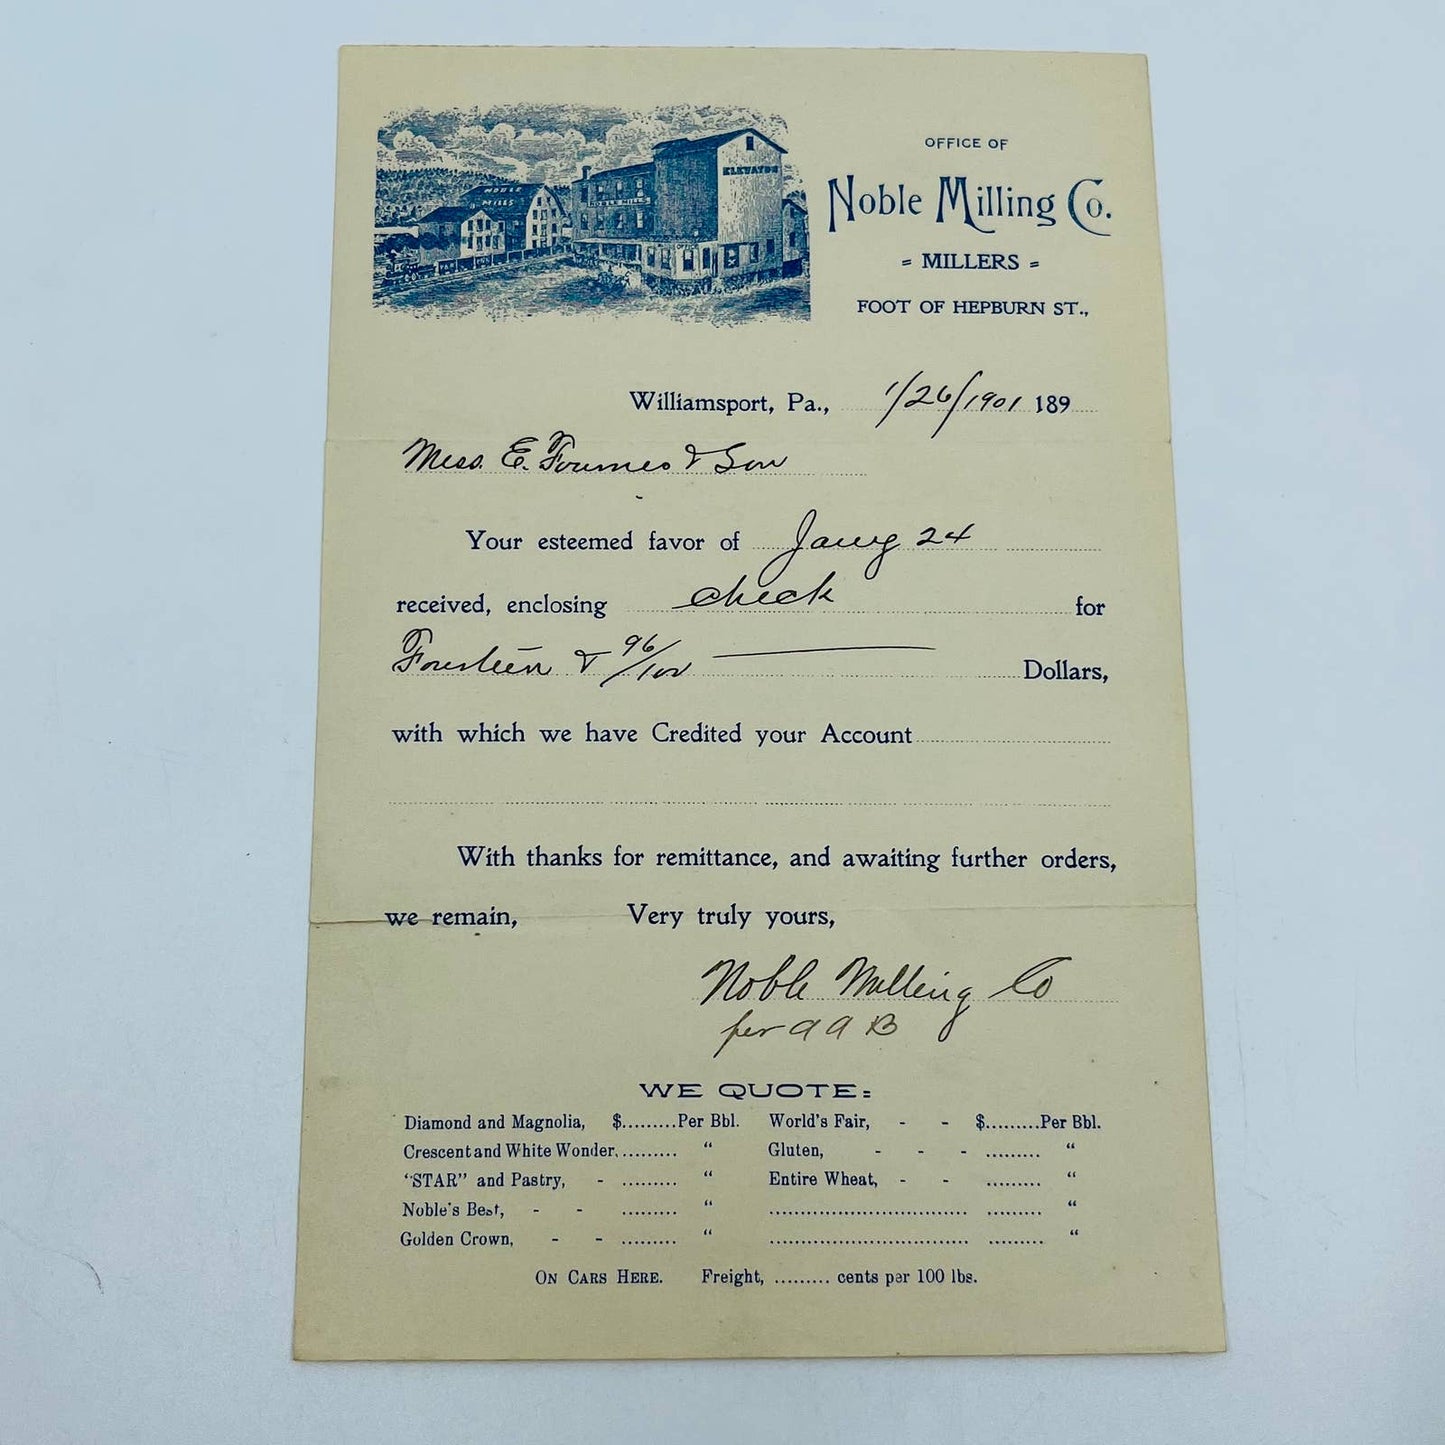 NOBLE MILLS
NOBLE MILLS
ELEVATOR
OFFICE
OFFICE OF
Noble Milling Co.
= MILLERS =
FOOT OF HEPBURN ST.,
Williamsport, Pa., 1/26/1901 189
Mess. E. & Son
Your esteemed favor of Jany 24
received, enclosing check for
Fourteen & 96/100 Dollars,
with which we have Credited your Account
With thanks for remittance, and awaiting further orders,
we remain, Very truly yours,
Noble Milling Co
per A A B
WE QUOTE:
Diamond and Magnolia, $.........Per Bbl. World's Fair, - - $.........Per Bbl.
Crescent and White Wonder,......... " Gluten, - - - ......... "
"STAR" and Pastry, - ......... " Entire Wheat, - - ......... "
Noble's Best, - - ......... " ................................ ......... "
Golden Crown, - - ......... " ................................ ......... "
ON CARS HERE. Freight, ......... cents per 100 lbs.